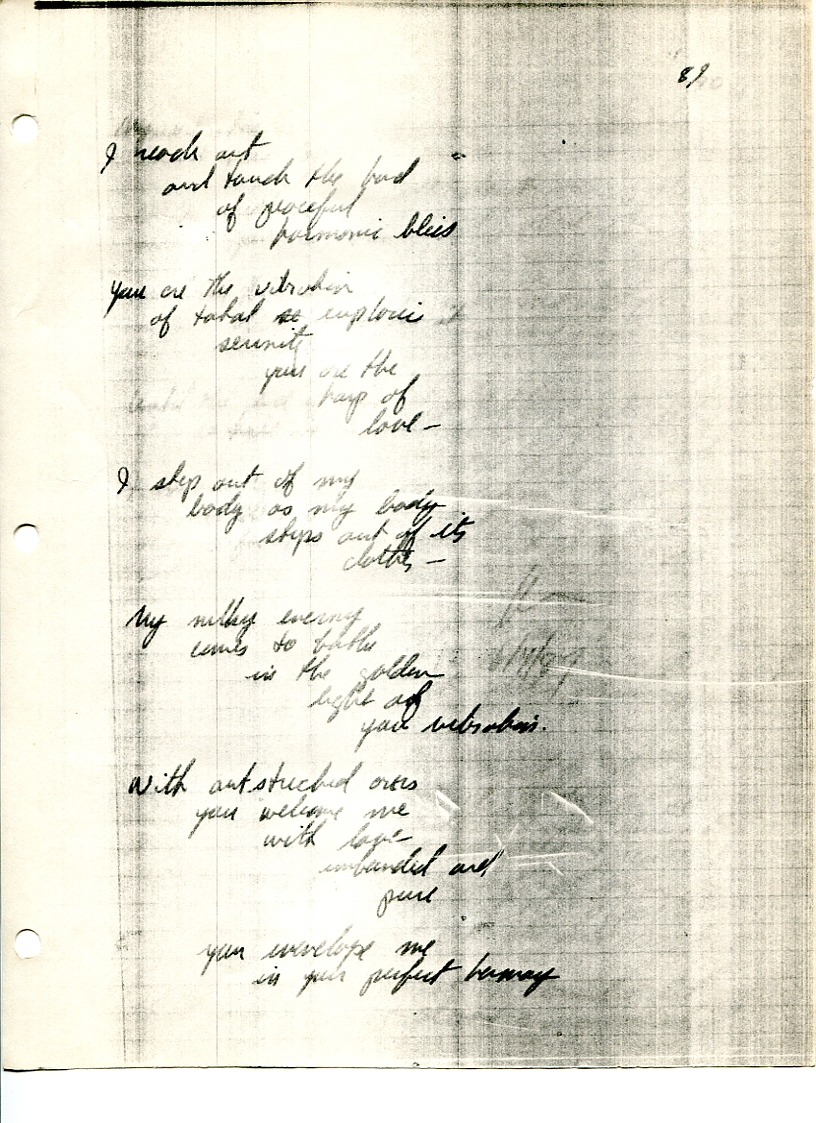 89
I reach out
and touch the bud
of peaceful
harmonic bliss
you are the vibration
of total euphoric
serenity
you are the
harp of
love —
I step out of my
body as my body
steps out of its
clothes —
My milky energy
comes to bathe
in the golden
light of
your vibrations.
With outstreched arms
you welcome me
with love
unbounded and
pure
you envelope me
in your perfect harmony